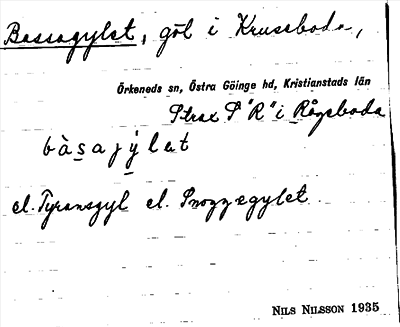 Bassagylet, göl i Kruseboda,
Örkeneds sn, Östra Göinge hd, Kristianstads län
Strax S "R" i Rågeboda
bàsajýlet
el. Tyransgyl el. Snoggegylet
NILS NILSSON 1935